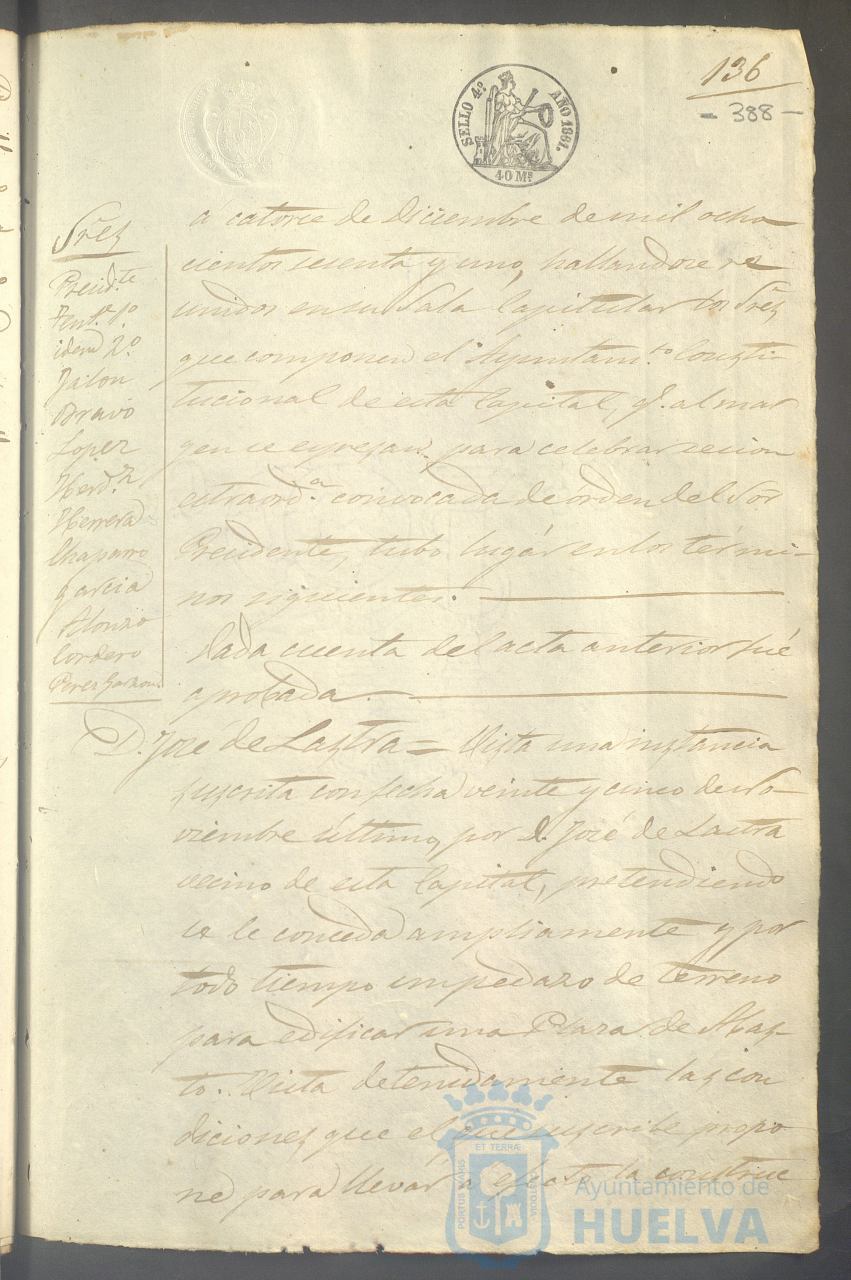 136
- 388 -
SELLO 4º AÑO 1861.
40 Mˢ
Sres
Presid.te
Tent.e 1º
idem 2º
Jalon
Bravo
Lopez
Herd.z
Herrera
Chaparro
Garcia
Alonzo
Cordero
Perez
á catorce de Diciembre de mil ocho
cientos sesenta y uno, hallandose re
unidos en su Sala Capitular los Sres
que componen el Ayuntam.to Consti-
tucional de esta Capital, q.e al mar
gen se espresan para celebrar sesion
estraord.a convocada de órden del Sor
Presidente, tubo lugár en los térmi-
nos siguientes.
Dada cuenta del acta anterior fué
aprobada
D. José de Lastra = Vista una instancia
suscrita con fecha veinte y cinco de No-
viembre último, por D. José de Lastra
vecino de esta Capital, pretendiendo
se le conceda ampliamente y por
todo tiempo un pedazo de terreno
para edificar una Plaza de Abas-
to. Vista detenidamente las con
diciones que el que suscribe propo-
ne para llevar á efecto la construc
PORTUS MARIS ET TERRÆ CUSTODIA
Ayuntamiento de
HUELVA